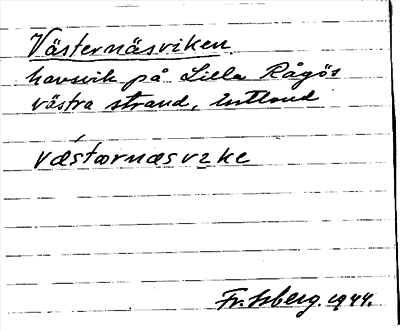 Västernäsviken
havsvik på Lilla Rågös
västra strand, Estland
vǽstærnæsvɪke
Fr. Isberg. 1944.